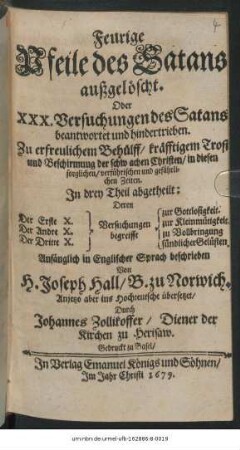 Feurige
Pfeile des Satans
außgelöscht.
Oder
XXX. Versuchungen des Satans
beantwortet und hindertrieben.
Zu erfreulichem Behülff/ kräfftigem Trost
und Beschirmung der schwachen Christen/ in diesen
sorglichen/ verführischen und gefährli-
chen Zeiten.
In drey Theil abgetheilt:
Deren
Der Erste X.
Der Andre X.
Der Dritte X.
Versuchungen
begreifft
zur Gottlosigkeit.
zur Kleinmütigkeit.
zu Vollbringung
sündlicher Gelüsten
Anfänglich in Englischer Sprach beschrieben
Von
H. Joseph Hall/ B. zu Norwich.
Anjetzo aber ins Hochteutsche übersetzet/
Durch
Johannes Zollikoffer/ Diener der
Kirchen zu Herisaw.
Gedruckt zu Basel/
In Verlag Emanuel Königs und Söhnen/
Im Jahr Christi 1679.